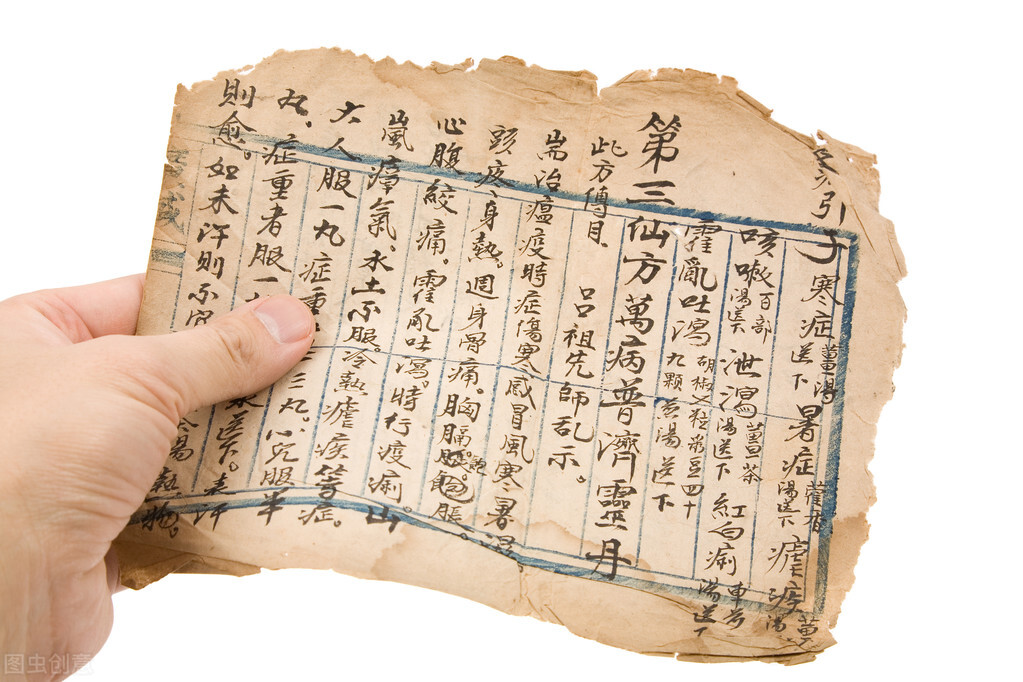 引子 寒症 薑湯送下 暑症 藿香湯送下 瘧疾 薑湯
咳嗽 百部湯送下 泄瀉 薑茶湯送下 紅白痢 車前湯送下
霍亂吐瀉 胡椒七粒彔豆四十九顆煎湯送下
第三仙方萬病普濟靈丹
此方傳自 呂祖先師乩示。
耑治瘟疫時症傷寒感冒風寒暑濕
頭疼身熱。週身骨痛。胸膈服飽脹。
心腹絞痛。霍乿吐瀉。時行疫痢。山
嵐瘴氣。水土不服。冷熱瘧疾等症。
大人服一丸 症重
丸、症重者服一 三丸。小兒服半
則愈。如未汗則 送下。表汗
熱物。
图虫创意